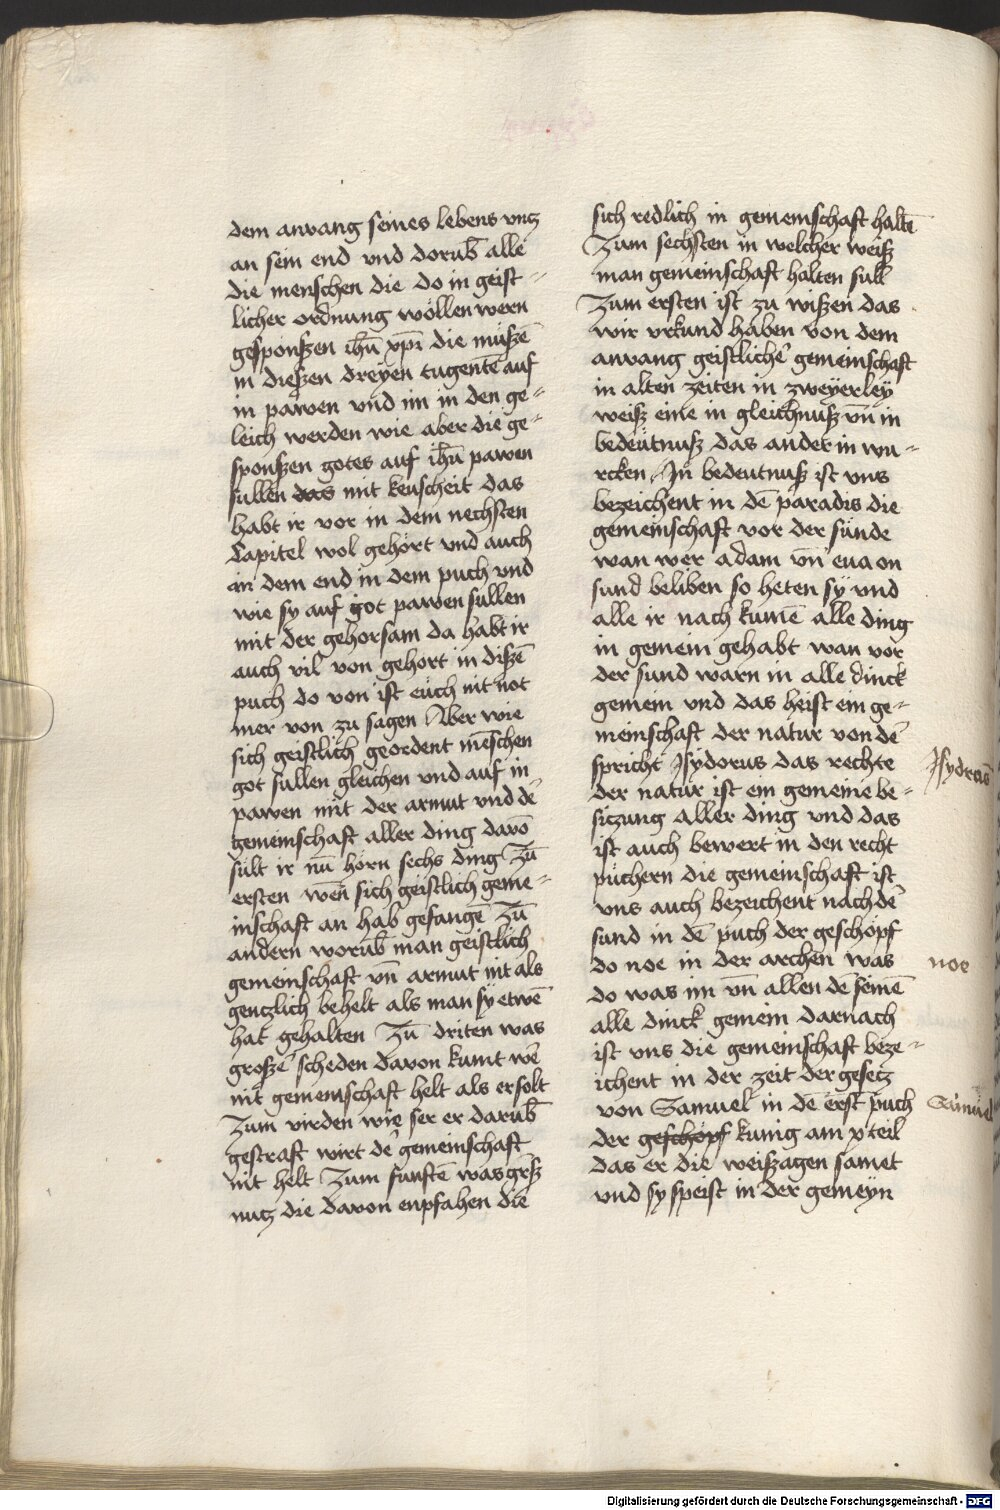 dem anvang seines lebens vntz
an sein end vnd dorub̄ alle
die menschen die do in geist-
licher ordnung wöllen wern
gesponßen ih̄u xp̄i die müßē
in dießen dreyen tugentē auf
in pawen vnd im in den ge-
leich werden wie aber die ge-
sponßen gotes auf ih̄u pawen
sullen das mit keuscheit das
habt ir vor in dem nechsten
Capitel wol gehört vnd auch
an dem end in dem puch vnd
wie sy auf got pawen sullen
mit der gehorsam da habt ir
auch vil von gehort in dißē
puch do von ist eüch nit not
mer von zu sagen Aber wie
sich geistlich geordent mēschen
got sullen gleichen vnd auf in
pawen mit der armut vnd dē
gemeinschaft aller ding davō
sült ir nū hörn sechs ding Zū
ersten wen sich geistlich geme-
inschaft an hab gefangē Zū
andern worub̄ man geistlich
gemeinschaft vn̄ armut nit als
gentzlich behelt als man sy etwē
hat gehalten Zū driten was
großē scheden davon kumt wē
nit gemeinschaft helt als er solt
Zum virden wie ser er darub̄
gestraft wirt dē gemeinschaft
nit helt Zum funftē was größ
nutz die davon enpfahen die
sich redlich in gemeinschaft haltē
Zum sechsten in welcher weiß
man gemeinschaft halten sull
Zum ersten ist zu wißen das
wir vrkund haben von dem
anvang geistlichē gemeinschaft
in alten zeiten in zweyerley
weiß eine in gleichnuß vn̄ in
bedeütnuß das ander in wu-
rcken Jn bedeutnuß ist vns
bezeichent in dē paradis die
gemeinschaft vor der sünde
wan wer adam vn̄ eua on
sund beliben so heten sy vnd
alle ir nach kumē alle ding
in gemein gehabt wan vor
der sund warn in alle dinck
gemein vnd das heist ein ge-
meinschaft der natur von dē
spricht Jsydorus das rechte
der natur ist ein gemeine be-
sitzung aller ding vnd das
ist auch bewert in den recht
püchern die gemeinschaft ist
vns auch bezeichent nach dē
sund in dē puch der geschöpf
do noe in der archen was
do was im vn̄ allen dē seinē
alle dinck gemein darnach
ist vns die gemeinschaft beze-
ichent in der zeit der gesetz
von Samuel in dē erst puch
der geschöpf kunig am x teil
das er die weißagen samet
vnd sy speist in der gemeyn
noe
Samuel
Digitalisierung gefördert durch die Deutsche Forschungsgemeinschaft - DFG